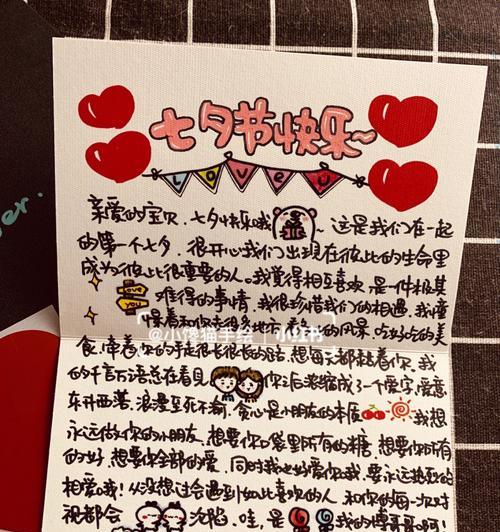 七夕节快乐~
Love u
亲爱的宝贝,七夕快乐哦,这是我们在一起
的第一个七夕,很开心我们出现在彼此的生命里
成为彼此很重要的人。我觉得相互喜欢是一件极其
难得的事情,我很珍惜我们的相遇,我憧
Love you
憬着和你去很多地方,看 的风景,吃好吃的美
@小馋猫手绘 小红书
食,牵着 的手走很长很长的路,想每天都黏着你,我
的千言万语总在看见你之后浓缩成了一个爱字,爱意
东升西落,浪漫至死不渝,贪心是小朋友的本质 我想
永远做你的小朋友,想要你口袋里所有的糖,想要你所有
的好,想要你全部的爱,同时我也好爱你哦,要永远热烈的
相爱哦!从没想过会遇到如此喜欢的人,和你的每一次对
视都会 沦陷,哇,是 我的博哥哥啊!
ver.